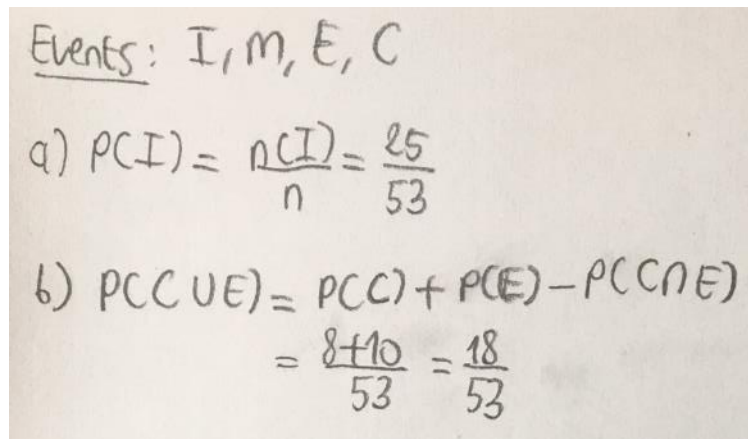 Events: I, M, E, C
a) P(I) = n(I)/n = 25/53
b) P(C∪E) = P(C) + P(E) - P(C∩E)
= 8+10/53 = 18/53